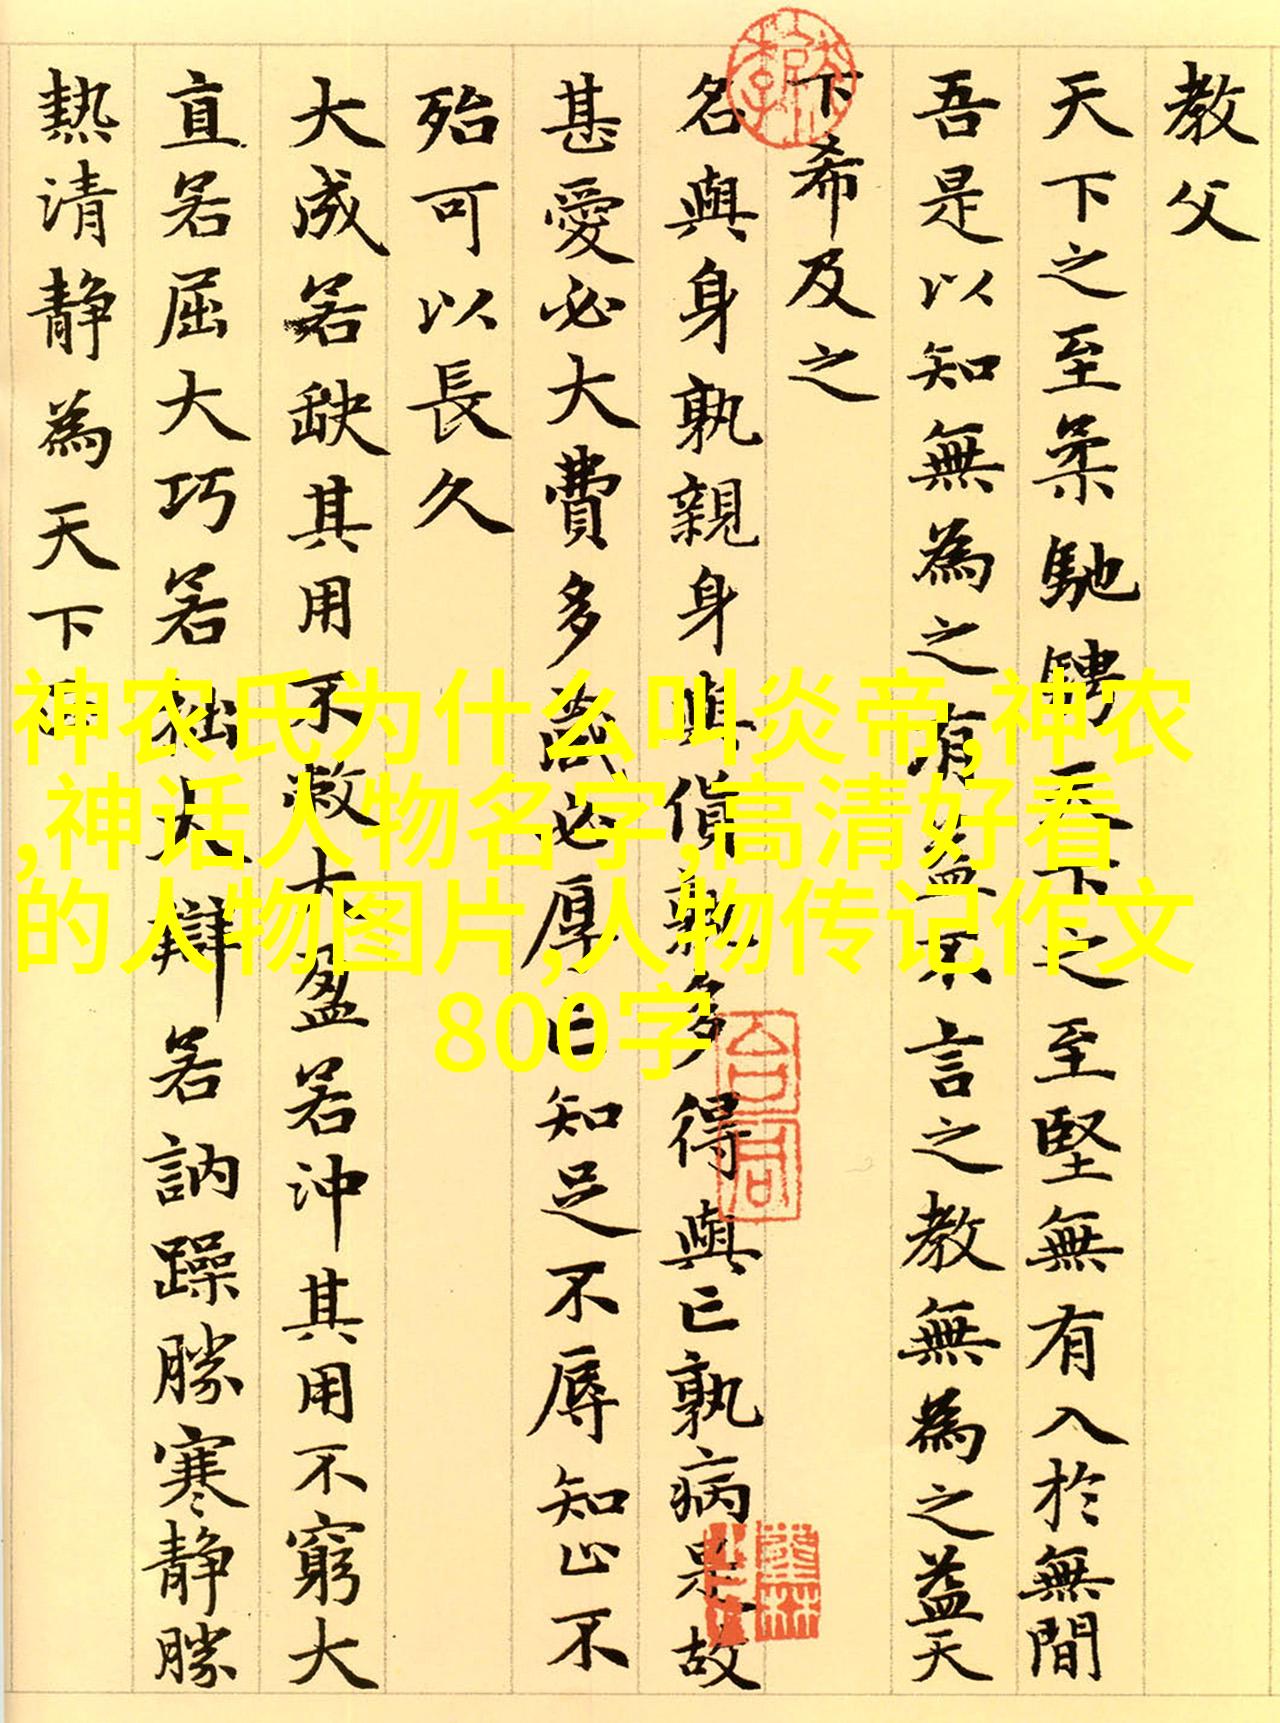 教父
天下之至柔馳騁天下之至堅無有入於無間
吾是以知無為之有益不言之教無為之益天
下希及之
名與身孰親身與貨孰多得與亡孰病是故
甚愛必大費多藏必厚亡知足不辱知止不
殆可以長久
大成若缺其用不敝大盈若沖其用不窮大
直若屈大巧若拙大辯若訥躁勝寒静勝
熱清静為天下正
神农氏为什么叫炎帝,神农
,神话人物名字,高清好看
的人物图片,人物传记作文
800字